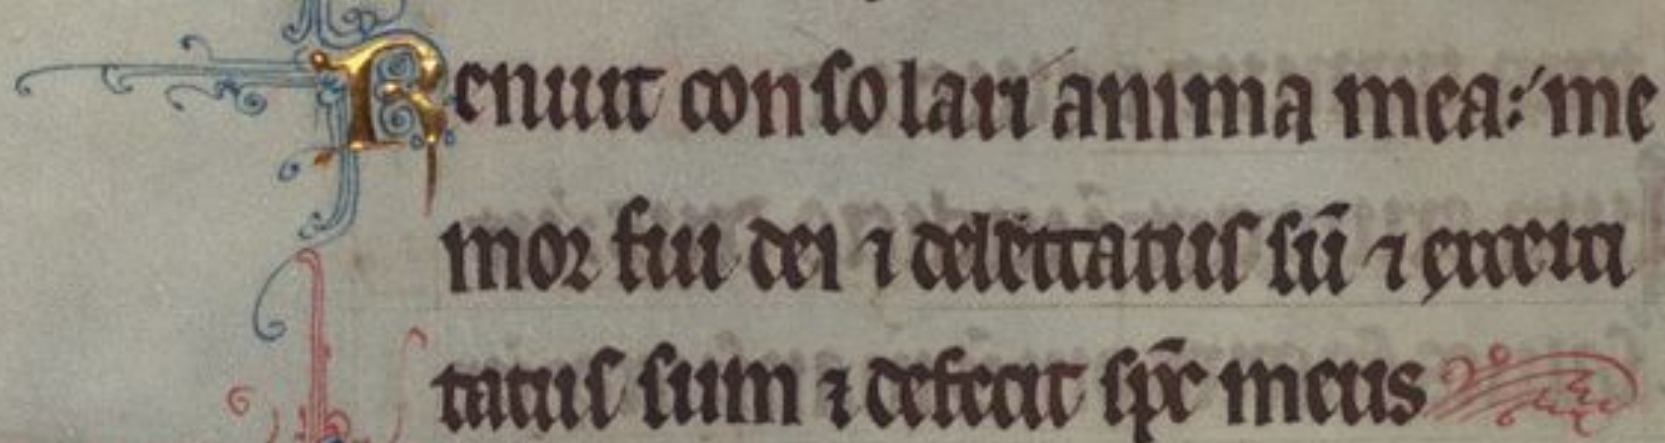 Renuit consolari anima mea: me
mor fui dei ⁊ delectatus sū ⁊ exerci
tatus sum ⁊ defecit sp̄c meus